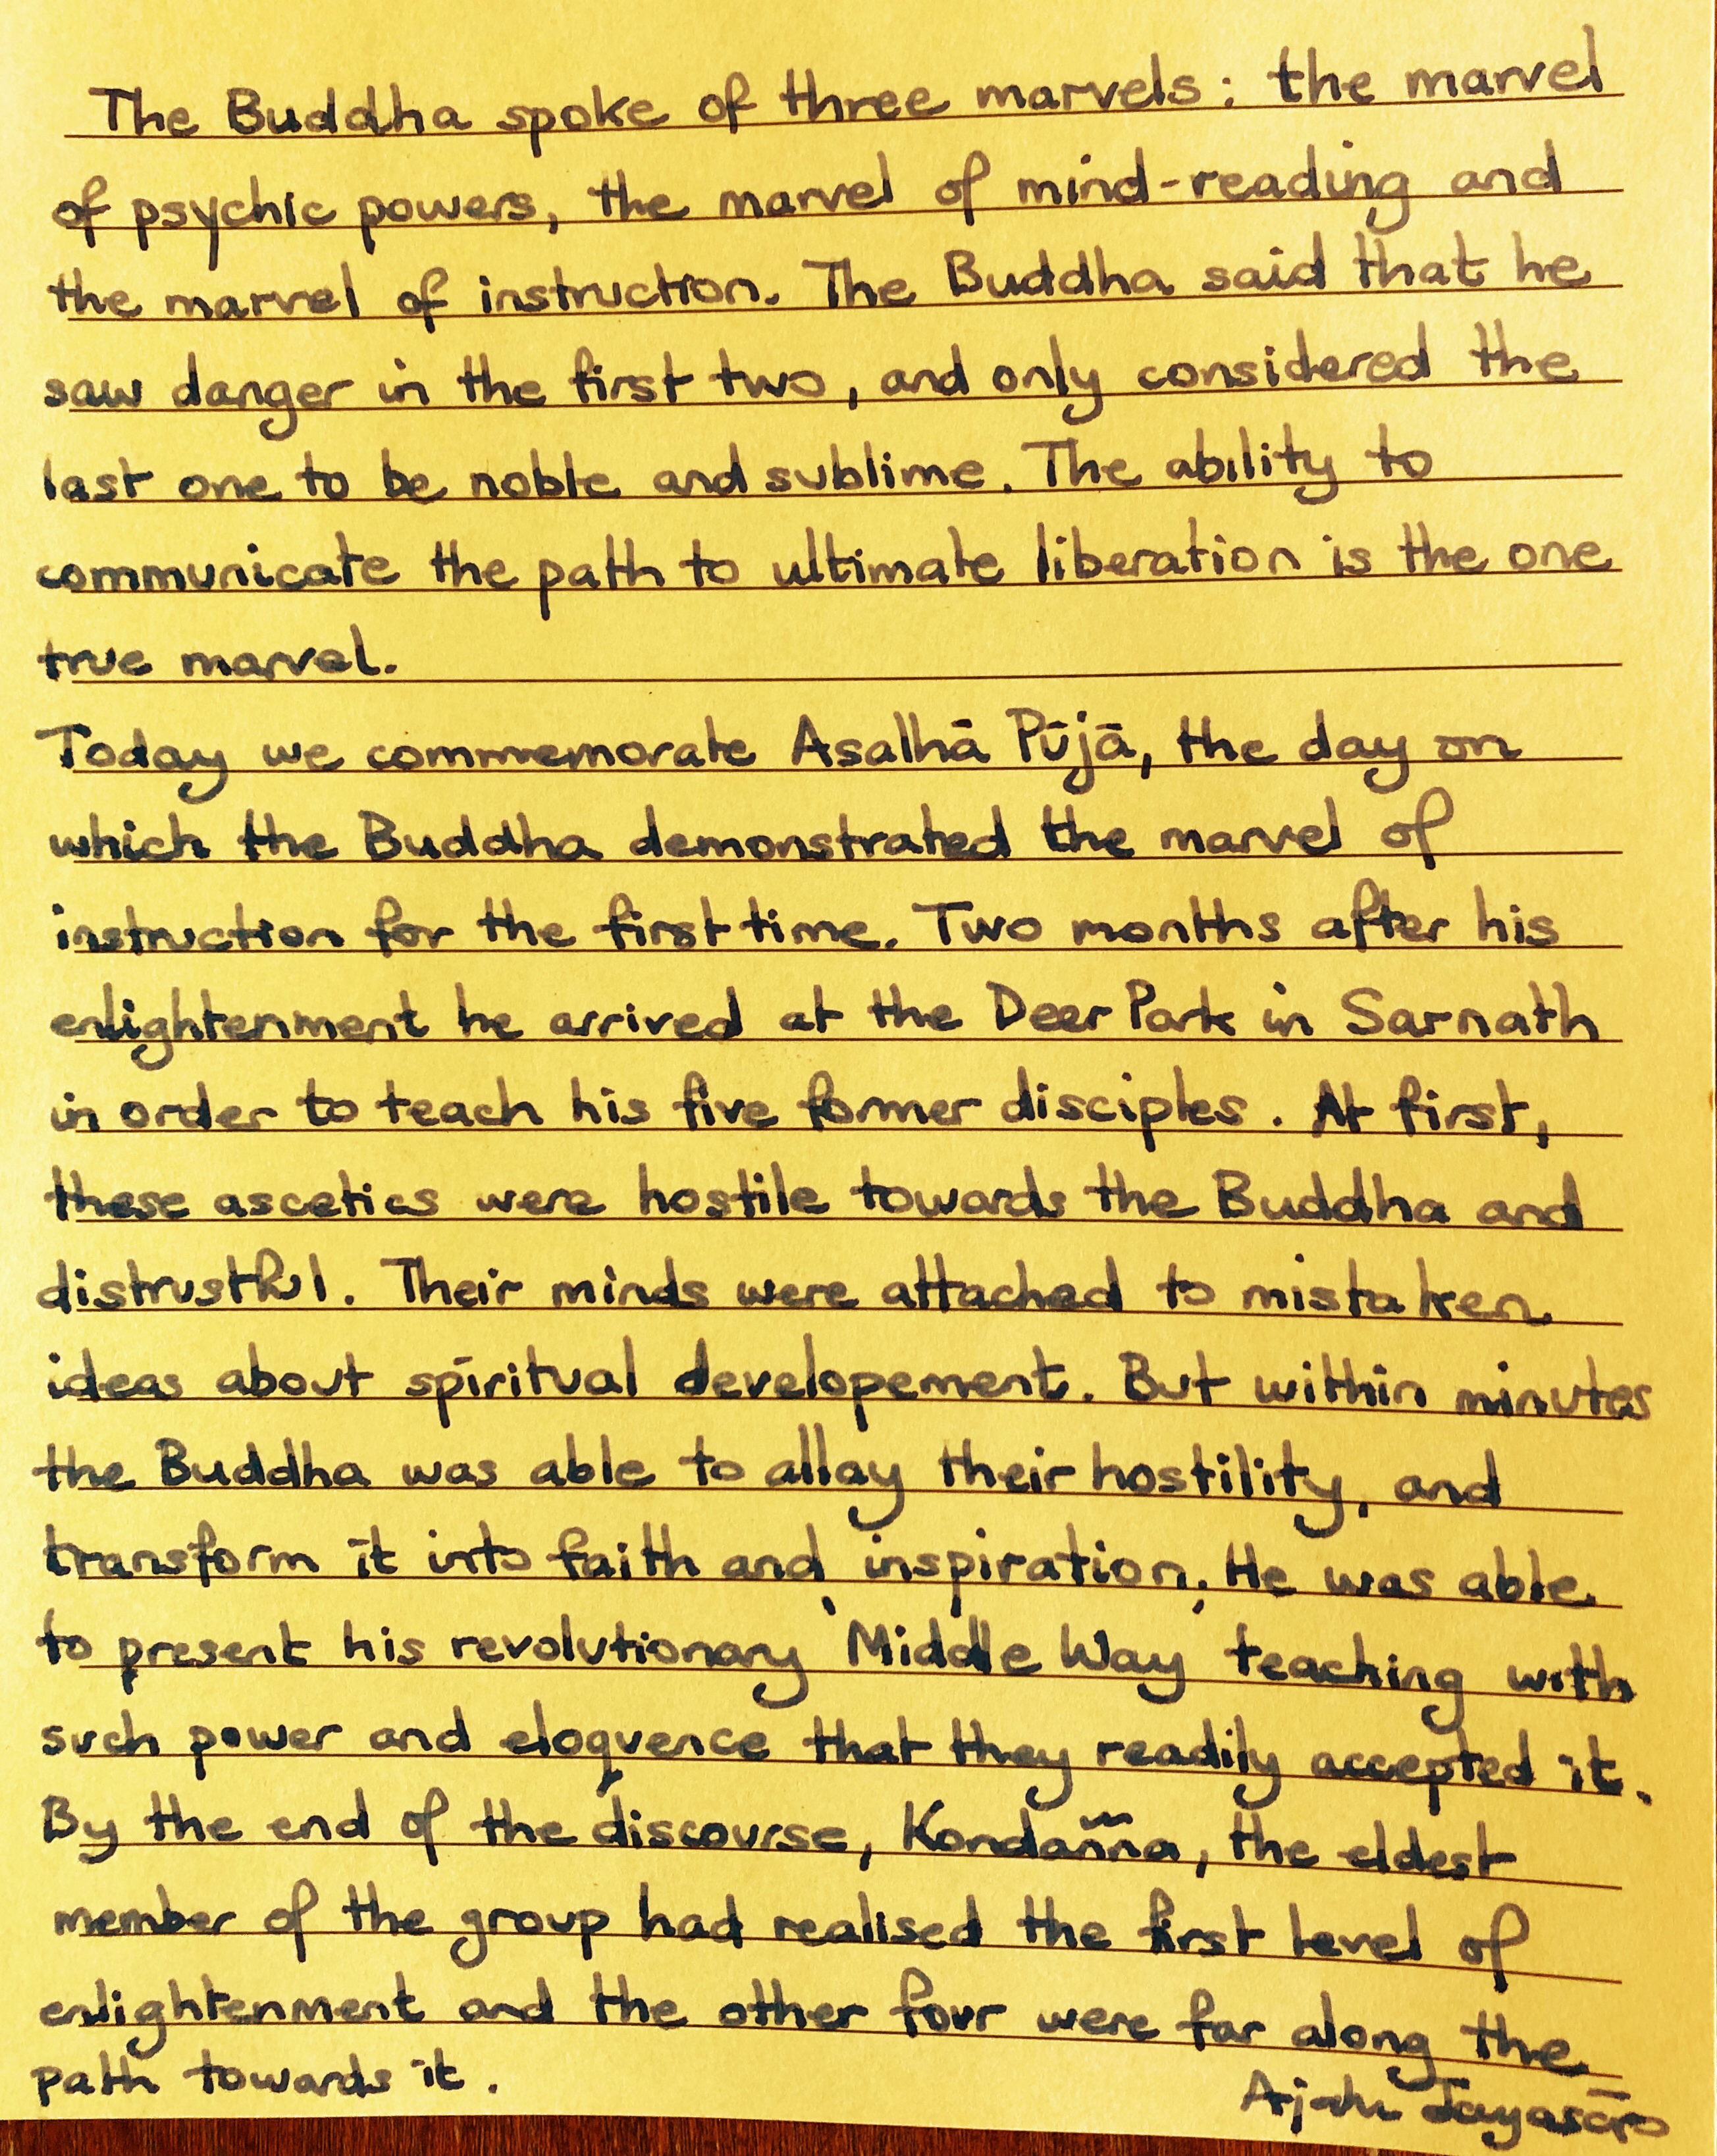 The Buddha spoke of three marvels: the marvel
of psychic powers, the marvel of mind-reading and
the marvel of instruction. The Buddha said that he
saw danger in the first two, and only considered the
last one to be noble and sublime. The ability to
communicate the path to ultimate liberation is the one
true marvel.
Today we commemorate Asalhā Pūjā, the day on
which the Buddha demonstrated the marvel of
instruction for the first time. Two months after his
enlightenment he arrived at the Deer Park in Sarnath
in order to teach his five former disciples. At first,
these ascetics were hostile towards the Buddha and
distrustful. Their minds were attached to mistaken
ideas about spiritual developement. But within minutes
the Buddha was able to allay their hostility, and
transform it into faith and inspiration. He was able
to present his revolutionary 'Middle Way' teaching with
such power and eloquence that they readily accepted it.
By the end of the discourse, Kondañña, the eldest
member of the group had realised the first level of
enlightenment and the other four were far along the
path towards it.
Ajahn Jayasāro